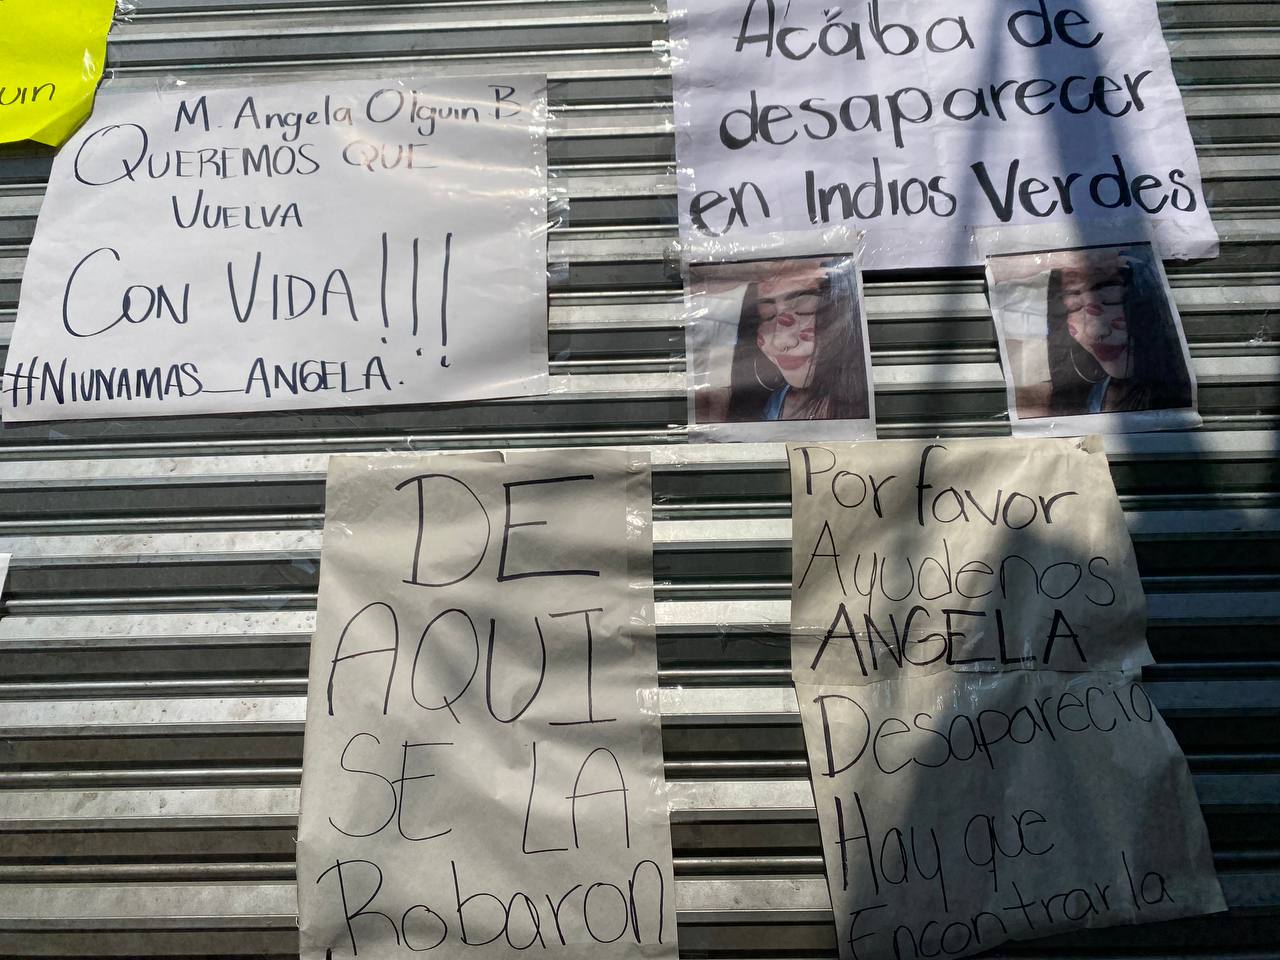 uin
M. Angela Olguin B.
QUEREMOS QUE
VUELVA
CON VIDA!!!
#NIUNAMAS_ANGELA.
Acába de
desaparecer
en Indios Verdes
DE
AQUI
SE LA
Robaron
Por favor
Ayudenos
ANGELA
Desaparecio
Hay que
Encontrarla